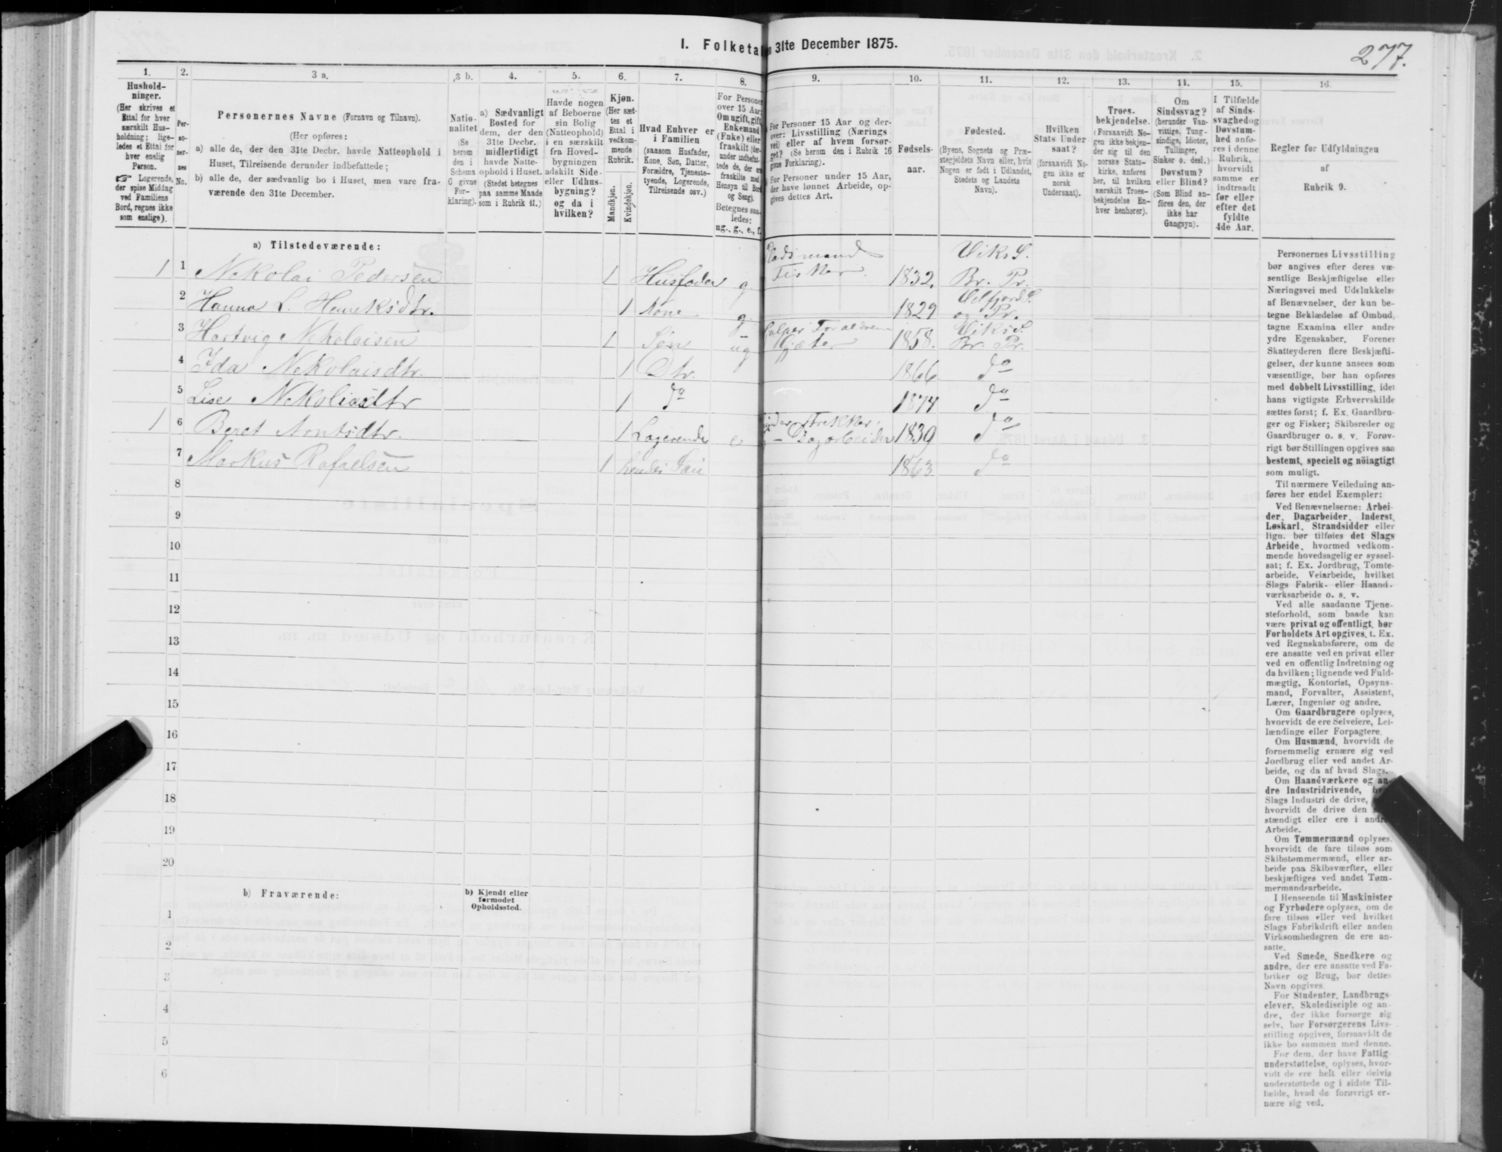 277.
I. Folketal
31te December 1875.
1.
Hushold-
ninger.
(Her skrives et
Ettal for hver
særskilt Hus-
holdning; lige-
ledes et Ettal for
hver enslig
Person.
Logerende,
der spise Middag
ved Familiens
Bord, regnes ikke
som enslige).
2.
Per-
so-
ner-
nes
No.
3 a.
Personernes Navne (Fornavn og Tilnavn).
(Her opføres:
a) alle de, der den 31te Decbr. havde Natteophold i
Huset, Tilreisende derunder indbefattede;
b) alle de, der sædvanlig bo i Huset, men vare fra-
værende den 31te December.
3 b.
Natio-
nalitet
(Se
herom
den i
Schema
C givne
For-
klaring).
4.
a) Sædvanligt
Bosted for
dem, der den
31te Decbr.
midlertidigt
havde Natte-
ophold i Huset.
(Stedet betegnes
paa samme Maade
som i Rubrik 11.)
5.
Havde nogen
af Beboerne
sin Bolig
(Natteophold)
i en særskilt
fra Hoved-
bygningen
adskilt Side-
eller Udhus-
bygning?
og da i
hvilken?
6.
Kjøn.
(Her sæt-
tes et
Ettal i
vedkom-
mende
Rubrik.
Mandkjøn.
Kvindekjøn.
7.
Hvad Enhver er
i Familien
(saasom Husfader,
Kone, Søn, Datter,
Forældre, Tjeneste-
tyende, Logerende,
Tilreisende osv.)
8.
For Personer
over 15 Aar:
Om ugift, gift,
Enkemand
(Enke) eller
fraskilt
Betegnes saa-
ledes:
ug., g., e., f.
9.
For Personer 15 Aar og der-
over: Livsstilling (Nærings-
vei) eller af hvem forsør-
get? (Se herom den i Rubrik 16
givne Forklaring).
For Personer under 15 Aar,
der have lønnet Arbeide, op-
gives dettes Art.
10.
Fødsels-
aar.
11.
Fødested.
(Byens, Sognets og Præ-
stegjeldets Navn eller, hvis
Nogen er født i Udlandet,
Stedets og Landets
Navn).
12.
Hvilken
Stats Under-
saat?
(forsaavidt No-
gen ikke er
norsk
Undersaat).
13.
Troes-
bekjendelse.
(Forsaavidt No-
gen ikke bekjen-
der sig til den
norske Stats-
kirke, anføres
her, til hvilken
særskilt Troes-
bekjendelse En-
hver henhører).
14.
Om
Sindssvag?
(herunder Van-
vittige, Tung-
sindige, Idioter,
Tullinger,
Sinker o. desl.)
Døvstum?
eller Blind?
(Som Blind an-
føres den, der
ikke har
Gangsyn).
15.
I Tilfælde
af Sinds-
svaghed og
Døvstum-
hed anfø-
res i denne
Rubrik,
hvorvidt
samme er
indtraadt
før eller
efter det
fyldte
4de Aar.
16.
Regler for Udfyldningen
af
Rubrik 9.
a) Tilstedeværende:
1 1 Nikolai Pedersen 1 Husfader g Fisker. 1832. Vik S. Br. Pr.
2 Hanna L. Henriksdtr. 1 Kone g 1829 og Pr.
3 Hartvig Nikolaisen 1 Søn ug 1858. Vik S. Br. Pr.
4 Ida Nikolaisdtr. 1 Dtr. 1866 do
5 Lise Nikolaisdtr 1 do 1874 do
1 6 Beret Montsdtr. 1 Logerende e Dagarbeider 1830 do
7 Markus Rafaelsen 1 hendes Søn 1863 do
8
9
10
11
12
13
14
15
16
17
18
19
20
b) Fraværende:
b) Kjendt eller
formodet
Opholdssted.
1
2
3
4
5
6
Personernes Livsstilling
bør angives efter deres væ-
sentlige Beskjæftigelse eller
Næringsvei med Udelukkelse
af Benævnelser, der kun be-
tegne Beklædelse af Ombud,
tagne Examina eller andre
ydre Egenskaber. Forener
Skatteyderen flere Beskjæfti-
gelser, der kunne ansees som
væsentlige, bør han opføres
med dobbelt Livsstilling, idet
hans vigtigste Erhvervskilde
sættes først; f. Ex. Gaardbru-
ger og Fisker; Skibsreder og
Gaardbruger o. s. v. Forøv-
rigt bør Stillingen opgives saa
bestemt, specielt og nöiagtigt
som muligt.
Til nærmere Veiledning an-
føres her endel Exempler:
Ved Benævnelserne: Arbei-
der, Dagarbeider, Inderst,
Løskarl, Strandsidder eller
lign. bør tilføies det Slags
Arbeide, hvormed vedkom-
mende hovedsagelig er syssel-
sat; f. Ex. Jordbrug, Tomte-
arbeide, Veiarbeide, hvilket
Slags Fabrik- eller Haand-
værksarbeide o. s. v.
Ved alle saadanne Tjene-
steforhold, som baade kan
være privat og offentligt, bør
Forholdets Art opgives, t. Ex.
ved Regnskabsførere, om de
ere ansatte ved en privat eller
ved en offentlig Indretning og
da hvilken; lignende ved Fuld-
mægtig, Kontorist, Opsyns-
mand, Forvalter, Assistent,
Lærer, Ingeniør og andre.
Om Gaardbrugere oplyses,
hvorvidt de ere Selveiere, Lei-
lændinge eller Forpagtere.
Om Husmænd, hvorvidt de
fornemmelig ernære sig ved
Jordbrug eller ved andet Ar-
beide, og da af hvad Slags.
Om Haandværkere og an-
dre Industridrivende,
Slags Industri de drive,
hvorvidt de drive den
stændigt eller ere i
Arbeide.
Om Tømmermænd oplyses,
hvorvidt de fare tilsøs som
Skibstømmermænd, eller ar-
beide paa Skibsværfter, eller
beskjæftiges ved andet Tøm-
mermandsarbeide.
I Henseende til Maskinister
og Fyrbødere oplyses, om de
fare tilsøs eller ved hvilket
Slags Fabrikdrift eller anden
Virksomhedsgren de ere an-
satte.
Ved Smede, Snedkere og
andre, der ere ansatte ved Fa-
briker og Brug, bør dettes
Navn opgives.
For Studenter, Landbrugs-
elever, Skoledisciple og an-
dre, der ikke forsørge sig
selv, bør Forsørgerens Livs-
stilling opgives, forsaavidt de
ikke bo sammen med denne.
For dem, der have Fattig-
understøttelse, oplyses, hvor-
vidt de ere helt eller delvis
understøttede og i sidste Til-
fælde, hvad de forøvrigt er-
nære sig ved.